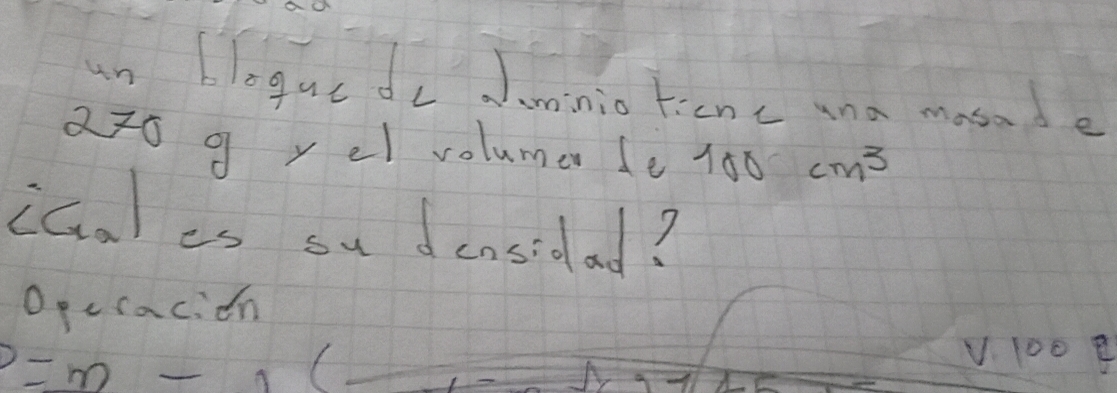 un bloque de Aluminio tiene una masa de
270 g y el volumen de 100 cm³
¿Cual es su densidad?
Operación
V. 100
P = m